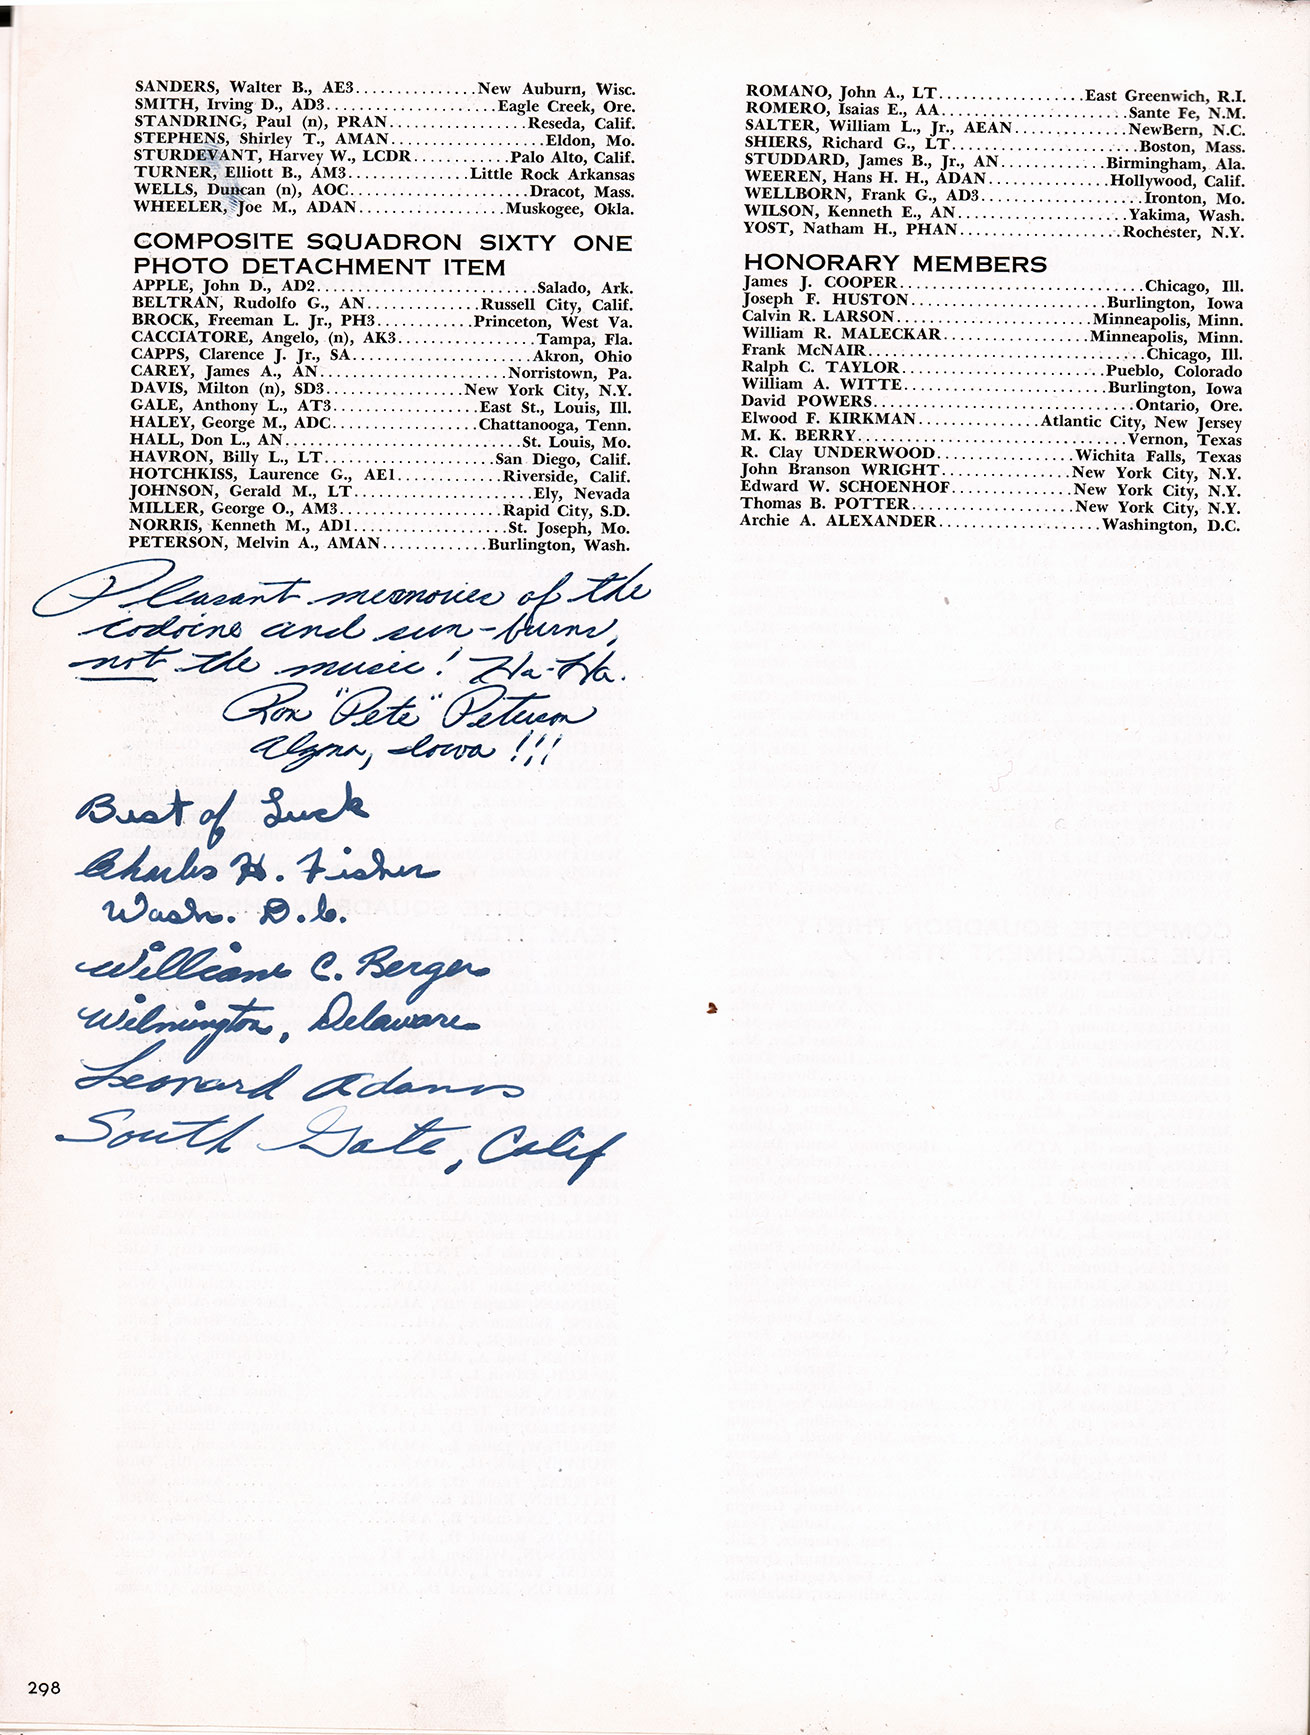 SANDERS, Walter B., AE3...............New Auburn, Wisc.
SMITH, Irving D., AD3.....................Eagle Creek, Ore.
STANDRING, Paul (n), PRAN.................Reseda, Calif.
STEPHENS, Shirley T., AMAN....................Eldon, Mo.
STURDEVANT, Harvey W., LCDR............Palo Alto, Calif.
TURNER, Elliott B., AM3...............Little Rock Arkansas
WELLS, Duncan (n), AOC.......................Dracot, Mass.
WHEELER, Joe M., ADAN..................Muskogee, Okla.
COMPOSITE SQUADRON SIXTY ONE
PHOTO DETACHMENT ITEM
APPLE, John D., AD2...........................Salado, Ark.
BELTRAN, Rudolfo G., AN..............Russell City, Calif.
BROCK, Freeman L. Jr., PH3............Princeton, West Va.
CACCIATORE, Angelo, (n), AK3.................Tampa, Fla.
CAPPS, Clarence J. Jr., SA......................Akron, Ohio
CAREY, James A., AN.......................Norristown, Pa.
DAVIS, Milton (n), SD3.................New York City, N.Y.
GALE, Anthony L., AT3..................East St., Louis, Ill.
HALEY, George M., ADC..................Chattanooga, Tenn.
HALL, Don L., AN.............................St. Louis, Mo.
HAVRON, Billy L., LT.....................San Diego, Calif.
HOTCHKISS, Laurence G., AE1.............Riverside, Calif.
JOHNSON, Gerald M., LT......................Ely, Nevada
MILLER, George O., AM3....................Rapid City, S.D.
NORRIS, Kenneth M., AD1...................St. Joseph, Mo.
PETERSON, Melvin A., AMAN.............Burlington, Wash.
Pleasant memories of the
iodoine and sun-burns,
not the music! Ha-Ha.
Ron "Pete" Peterson
Algona, Iowa !!!
Best of Luck
Charles H. Fisher
Wash. D.C.
William C. Berger
Wilmington, Delaware
Leonard Adams
South Gate, Calif
ROMANO, John A., LT..................East Greenwich, R.I.
ROMERO, Isaias E., AA.......................Sante Fe, N.M.
SALTER, William L., Jr., AEAN..............NewBern, N.C.
SHIERS, Richard G., LT.......................Boston, Mass.
STUDDARD, James B., Jr., AN.............Birmingham, Ala.
WEEREN, Hans H. H., ADAN...............Hollywood, Calif.
WELLBORN, Frank G., AD3....................Ironton, Mo.
WILSON, Kenneth E., AN.....................Yakima, Wash.
YOST, Natham H., PHAN....................Rochester, N.Y.
HONORARY MEMBERS
James J. COOPER.................................Chicago, Ill.
Joseph F. HUSTON........................Burlington, Iowa
Calvin R. LARSON........................Minneapolis, Minn.
William R. MALECKAR..................Minneapolis, Minn.
Frank McNAIR..................................Chicago, Ill.
Ralph C. TAYLOR..........................Pueblo, Colorado
William A. WITTE.........................Burlington, Iowa
David POWERS................................Ontario, Ore.
Elwood F. KIRKMAN...............Atlantic City, New Jersey
M. K. BERRY.................................Vernon, Texas
R. Clay UNDERWOOD.................Wichita Falls, Texas
John Branson WRIGHT................New York City, N.Y.
Edward W. SCHOENHOF...............New York City, N.Y.
Thomas B. POTTER....................New York City, N.Y.
Archie A. ALEXANDER....................Washington, D.C.
298